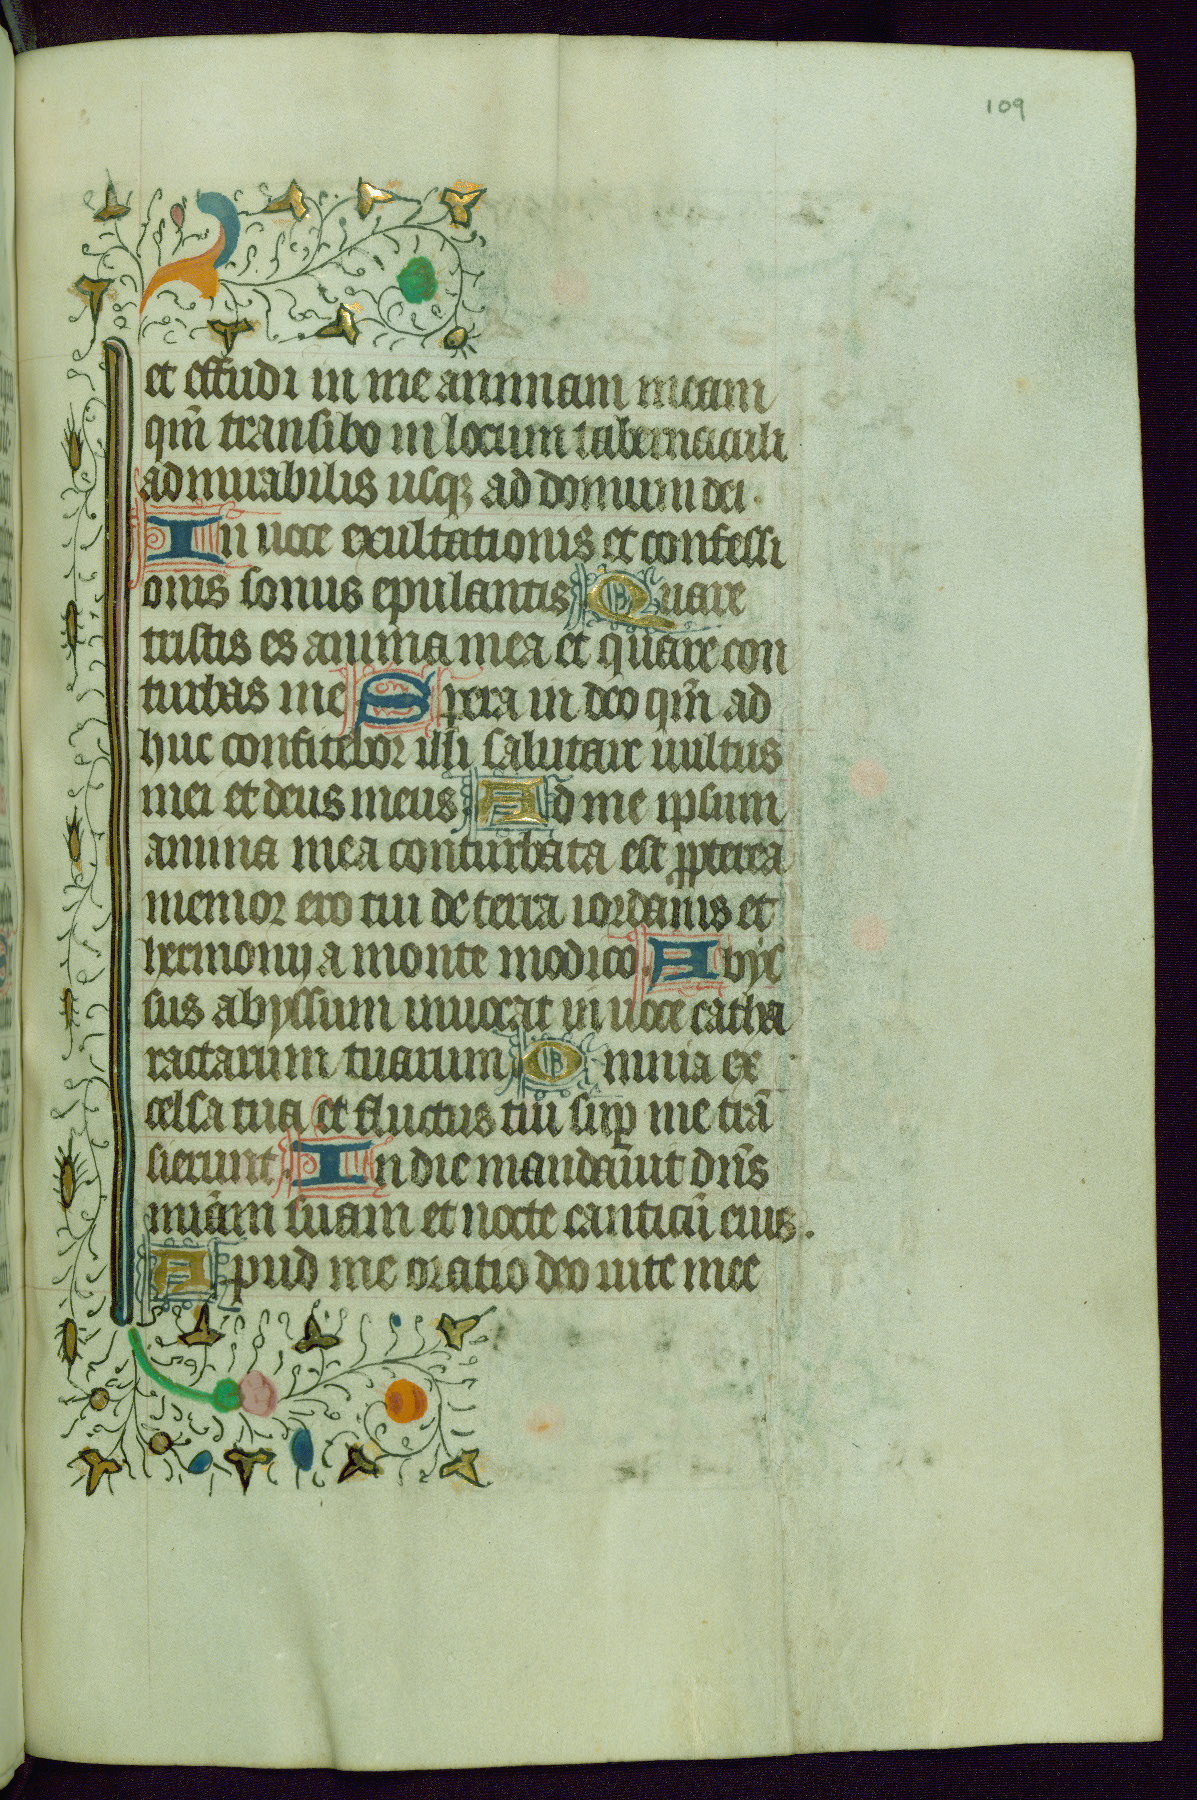 109
et effudi in me animam meam
qm̄ transibo in locum tabernaculi
admirabilis usqꝫ ad domum dei.
In uoce exultationis et confessi
onis sonus epulantis Quare
tristis es anima mea et quare con
turbas me Spera in deo qm̄ ad
huc confitebor illi salutare uultus
mei et deus meus Ad me ipsum
anima mea conturbata est ꝓpterea
memor ero tui de terra iordanis et
hermonij a monte modico. Abys
sus abyssum inuocat in uoce catha
ractarum tuarum Omnia ex
celsa tua et fluctus tui suꝑ me trā
sierunt. In die mandauit dn̄s
mi͞am suam et nocte canticū eius.
Apud me oratio deo uite mee